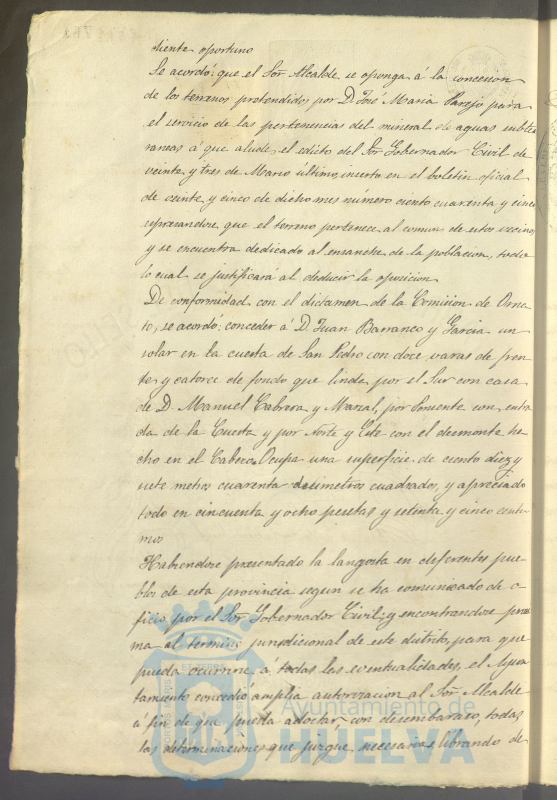 diente oportuno
Se acordó: que el Sor Alcalde se oponga á la concesion
de los terrenos pretendidos por D. José Maria Parejo para
el servicio de las pertenencias del mineral de aguas subte
rraneas á que alude el edicto del Sor Gobernador Civil de
veinte y tres de Marzo último, inserto en el boletin oficial
de veinte y cinco de dicho mes número ciento cuarenta y cinco
espresandose que el terreno pertenece al comun de estos vecinos
y se encuentra dedicado al ensanche de la poblacion, todo
lo cual se justificará al deducir la oposicion
De conformidad con el dictamen de la Comision de Orna-
to, se acordó: conceder á D. Juan Barranco y Garcia un
solar en la cuesta de San Pedro con doce varas de fren
te, y catorce de fondo que linda por el Sur con casa
de D. Manuel Cabrera y Marzal, por Poniente con entra
da de la Cuesta y por Norte y Este con el desmonte he
cho en el Cabezo. Ocupa una superficie de ciento diez y
siete metros cuarenta decimetros cuadrados, y apreciado
todo en cincuenta y ocho pesetas y setenta y cinco centi
mos
Habiendose presentado la langosta en diferentes pue-
blos de esta provincia segun se ha comunicado de o-
ficio por el Sor Gobernador Civil, y encontrandose proxi
ma al termino jurisdicional de este distrito, para que
pueda ocurrirse á todas las eventualidades, el Ayun
tamiento concedió amplia autorizacion al Sor Alcalde
á fin de que pueda adoptar con desembarazo, todas
las determinaciones que juzgue necesarias, librando de
Ayuntamiento de
HUELVA